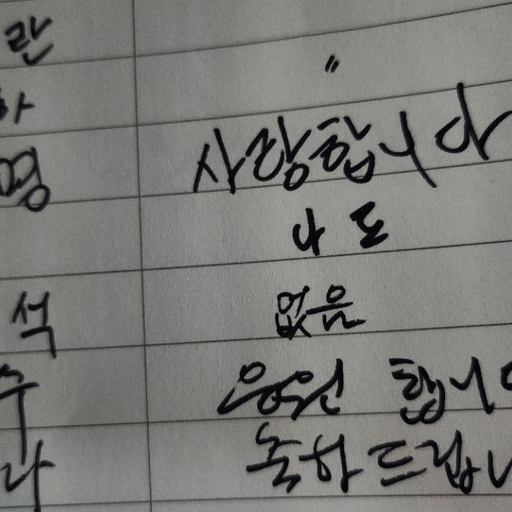 란
〃
명 사랑합니다
나도
석 없음
응원 합니다
축하드립니